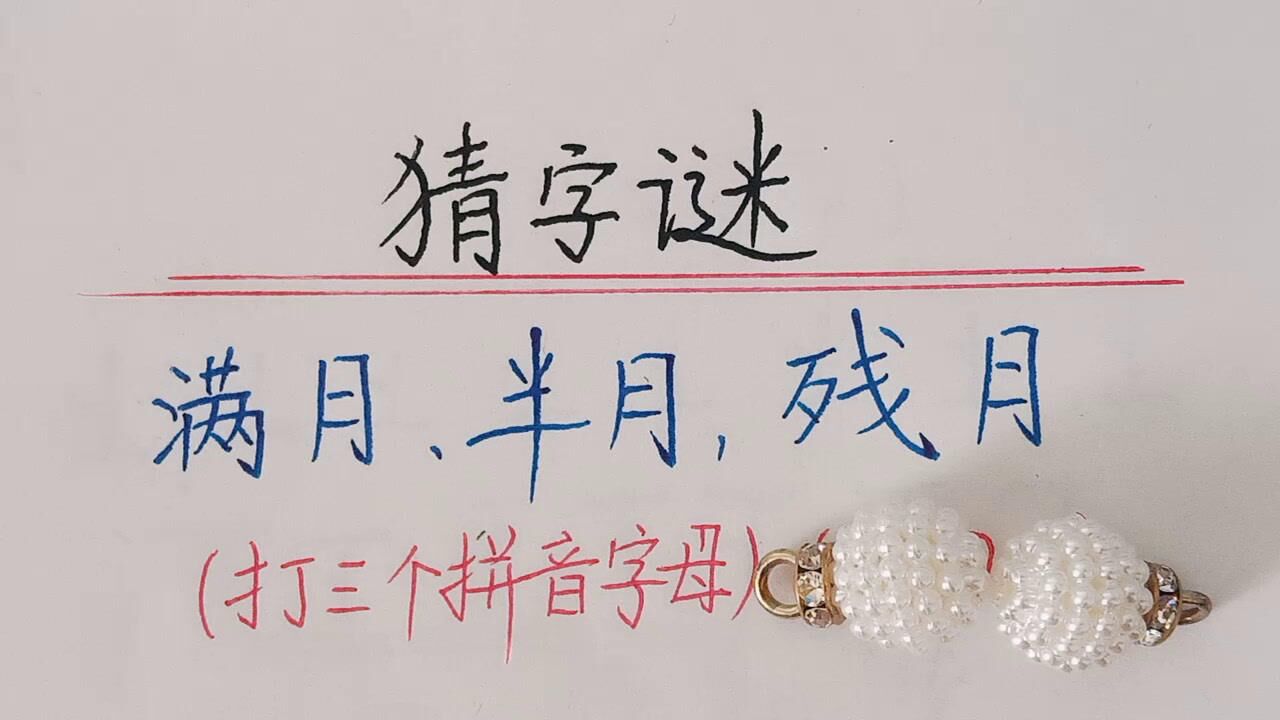 猜字谜
满月、半月,残月
(打三个拼音字母)